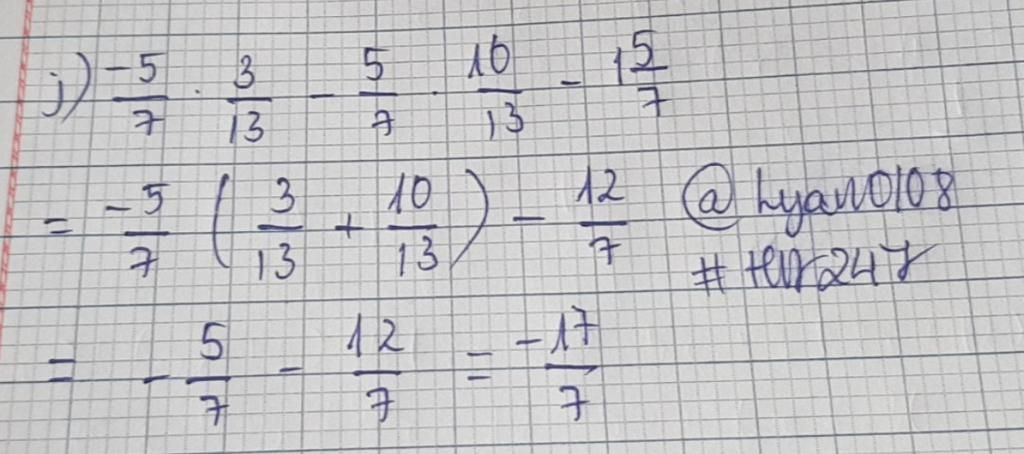 j) -5/7 . 3/13 - 5/7 . 10/13 - 1 5/7
= -5/7 ( 3/13 + 10/13 ) - 12/7 @ Lyan0108
# HĐ247
= - 5/7 - 12/7 = -17/7